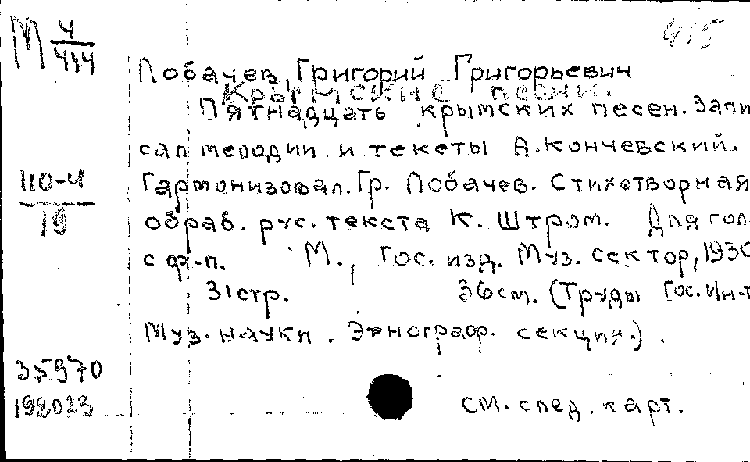 М 4/414
415
Лобачев, Григорий Григорьевич
Крымские песни.
Пятнадцать крымских песен. Запи
сал мелодии и тексты А. Кончевский.
110-4
Гармонизовал. Гр. Лобачев. Стихотворная
обраб. рус. текста К. Штром. Для гол.
с ф-п. М., Гос. изд. Муз. сектор, 1930
31 стр. 36 см. (Труды Гос. Ин-т
Муз. науки. Этнограф. секция.).
35970
198023
см. след. карт.